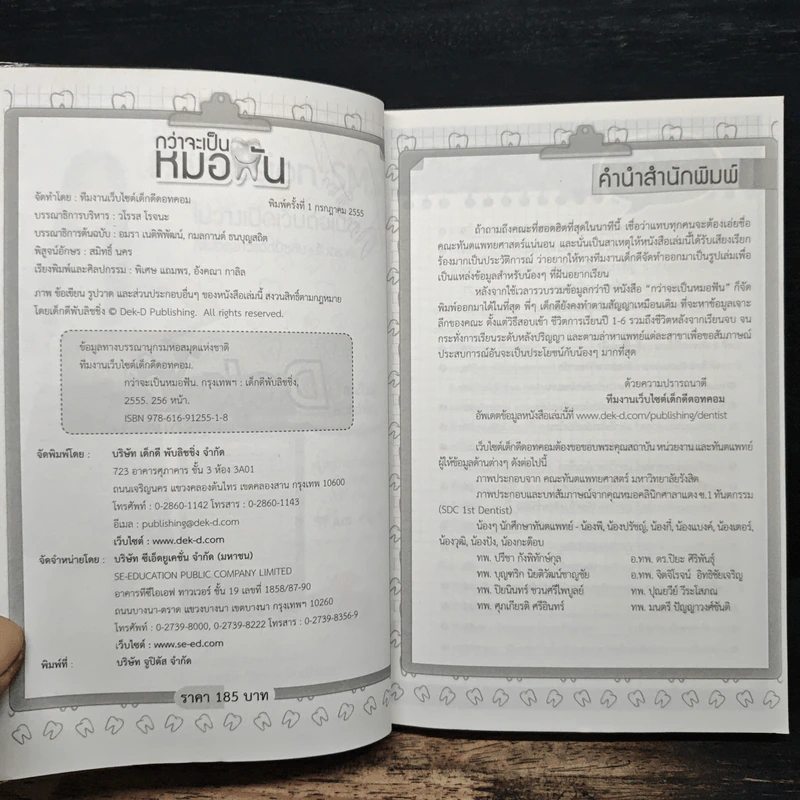 กว่าจะเป็น
หมอฟัน
จัดทำโดย : ทีมงานเว็บไซต์เด็กดีดอทคอม
พิมพ์ครั้งที่ 1 กรกฎาคม 2555
บรรณาธิการบริหาร : วโรรส โรจนะ
บรรณาธิการต้นฉบับ : อมรา เนติพิพัฒน์, กมลกานต์ ธนบุญสถิต
พิสูจน์อักษร : สมิทธิ์ นคร
เรียงพิมพ์และศิลปกรรม : พิเศษ แถมพร, อังคณา กาลิล
ภาพ ข้อเขียน รูปวาด และส่วนประกอบอื่นๆ ของหนังสือเล่มนี้ สงวนสิทธิ์ตามกฎหมาย
โดยเด็กดีพับลิชชิ่ง © Dek-D Publishing. All rights reserved.
ข้อมูลทางบรรณานุกรมหอสมุดแห่งชาติ
ทีมงานเว็บไซต์เด็กดีดอทคอม.
กว่าจะเป็นหมอฟัน. กรุงเทพฯ : เด็กดีพับลิชชิ่ง,
2555. 256 หน้า.
ISBN 978-616-91255-1-8
จัดพิมพ์โดย : บริษัท เด็กดี พับลิชชิ่ง จำกัด
723 อาคารศุภาคาร ชั้น 3 ห้อง 3A01
ถนนเจริญนคร แขวงคลองต้นไทร เขตคลองสาน กรุงเทพ 10600
โทรศัพท์ : 0-2860-1142 โทรสาร : 0-2860-1143
อีเมล : publishing@dek-d.com
เว็บไซต์ : www.dek-d.com
จัดจำหน่ายโดย : บริษัท ซีเอ็ดยูเคชั่น จำกัด (มหาชน)
SE-EDUCATION PUBLIC COMPANY LIMITED
อาคารทีซีไอเอฟ ทาวเวอร์ ชั้น 19 เลขที่ 1858/87-90
ถนนบางนา-ตราด แขวงบางนา เขตบางนา กรุงเทพฯ 10260
โทรศัพท์ : 0-2739-8000, 0-2739-8222 โทรสาร : 0-2739-8356-9
เว็บไซต์ : www.se-ed.com
พิมพ์ที่ : บริษัท จูปิตัส จำกัด
ราคา 185 บาท
คำนำสำนักพิมพ์
ถ้าถามถึงคณะที่ฮอตฮิตที่สุดในนาทีนี้ เชื่อว่าแทบทุกคนจะต้องเอ่ยชื่อ
คณะทันตแพทยศาสตร์แน่นอน และนั่นเป็นสาเหตุให้หนังสือเล่มนี้ได้รับเสียงเรียก
ร้องมากเป็นประวัติการณ์ ว่าอยากให้ทางทีมงานเด็กดีจัดทำออกมาเป็นรูปเล่มเพื่อ
เป็นแหล่งข้อมูลสำหรับน้องๆ ที่ฝันอยากเรียน
หลังจากใช้เวลารวบรวมข้อมูลกว่าปี หนังสือ “กว่าจะเป็นหมอฟัน” ก็จัด
พิมพ์ออกมาได้ในที่สุด พี่ๆ เด็กดียังคงทำตามสัญญาเหมือนเดิม ที่จะหาข้อมูลเจาะ
ลึกของคณะ ตั้งแต่วิธีสอบเข้า ชีวิตการเรียนปี 1-6 รวมถึงชีวิตหลังจากเรียนจบ จน
กระทั่งการเรียนระดับหลังปริญญา และตามล่าหาแพทย์แต่ละสาขาเพื่อขอสัมภาษณ์
ประสบการณ์อันจะเป็นประโยชน์กับน้องๆ มากที่สุด
ด้วยความปรารถนาดี
ทีมงานเว็บไซต์เด็กดีดอทคอม
อัพเดตข้อมูลหนังสือเล่มนี้ที่ www.dek-d.com/publishing/dentist
เว็บไซต์เด็กดีดอทคอมต้องขอขอบพระคุณสถาบัน หน่วยงาน และทันตแพทย์
ผู้ให้ข้อมูลด้านต่างๆ ดังต่อไปนี้
ภาพประกอบจาก คณะทันตแพทยศาสตร์ มหาวิทยาลัยรังสิต
ภาพประกอบและบทสัมภาษณ์จากคุณหมอคลินิกศาลาแดง ซ.1 ทันตกรรม
(SDC 1st Dentist)
น้องๆ นักศึกษาทันตแพทย์ - น้องพี, น้องปรัชญ์, น้องกี้, น้องแบงค์, น้องเตอร์,
น้องวุฒิ, น้องปัง, น้องกะต๊อบ
ทพ. ปรีชา กังพิทักษ์กุล อ.ทพ. ดร.ปิยะ ศิริพันธุ์
ทพ. บุญฑริก นิยติวัฒน์ชาญชัย อ.ทพ. จิตจิโรจน์ อิทธิชัยเจริญ
ทพ. ปิยนินทร์ ชวนศรีไพบูลย์ ทพ. ปุณยวีย์ วีระโสภณ
ทพ. ศุภเกียรติ ศรีอินทร์ ทพ. มนตรี ปัญญาวงศ์ขันติ